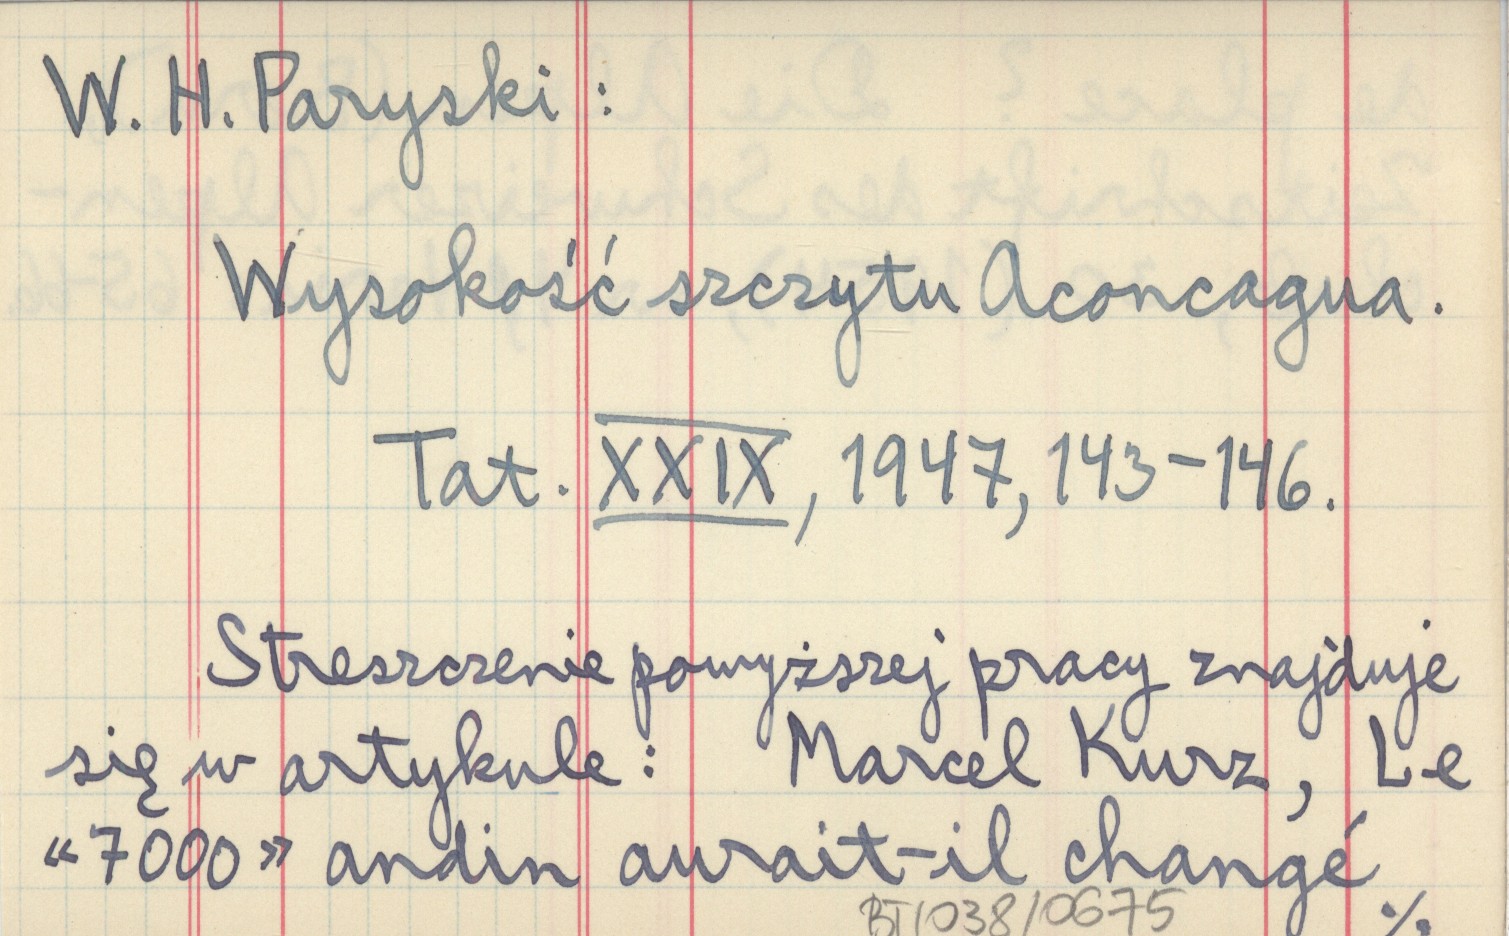 W. H. Paryski:
Wysokość szczytu Aconcagua.
Tat. XXIX, 1947, 143-146.
Streszczenie powyższej pracy znajduje
się w artykule: Marcel Kurz, Le
«7000» andin aurait-il changé
BT/038/0675
./.